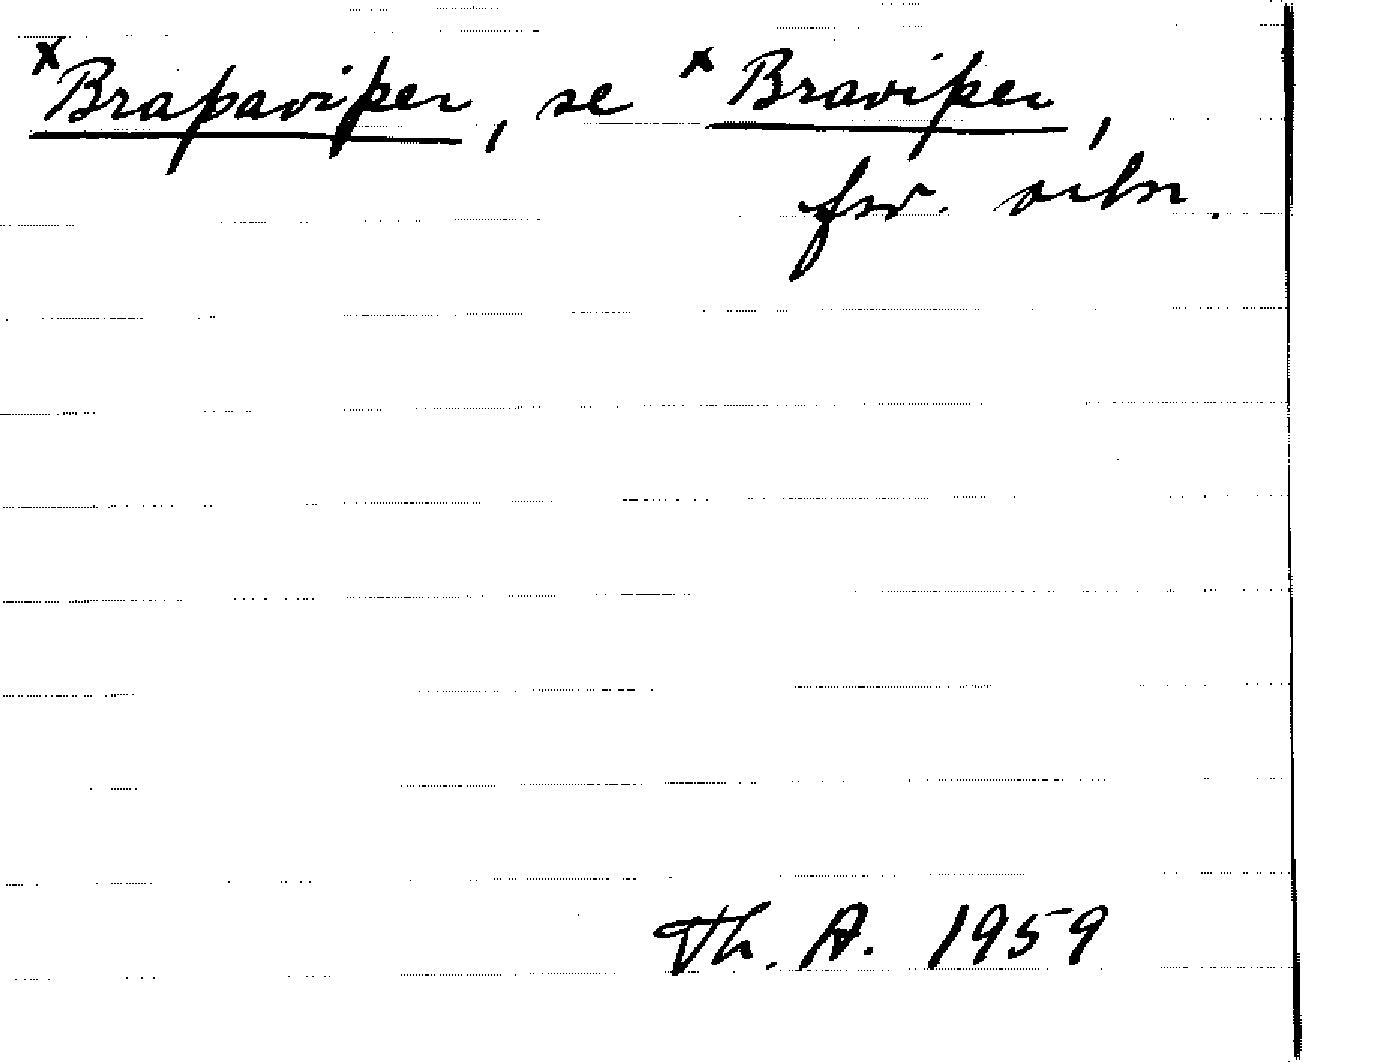 ˣBraþaviþer, se ˣBraviþer,
fsv. vibn.
Th. A. 1959